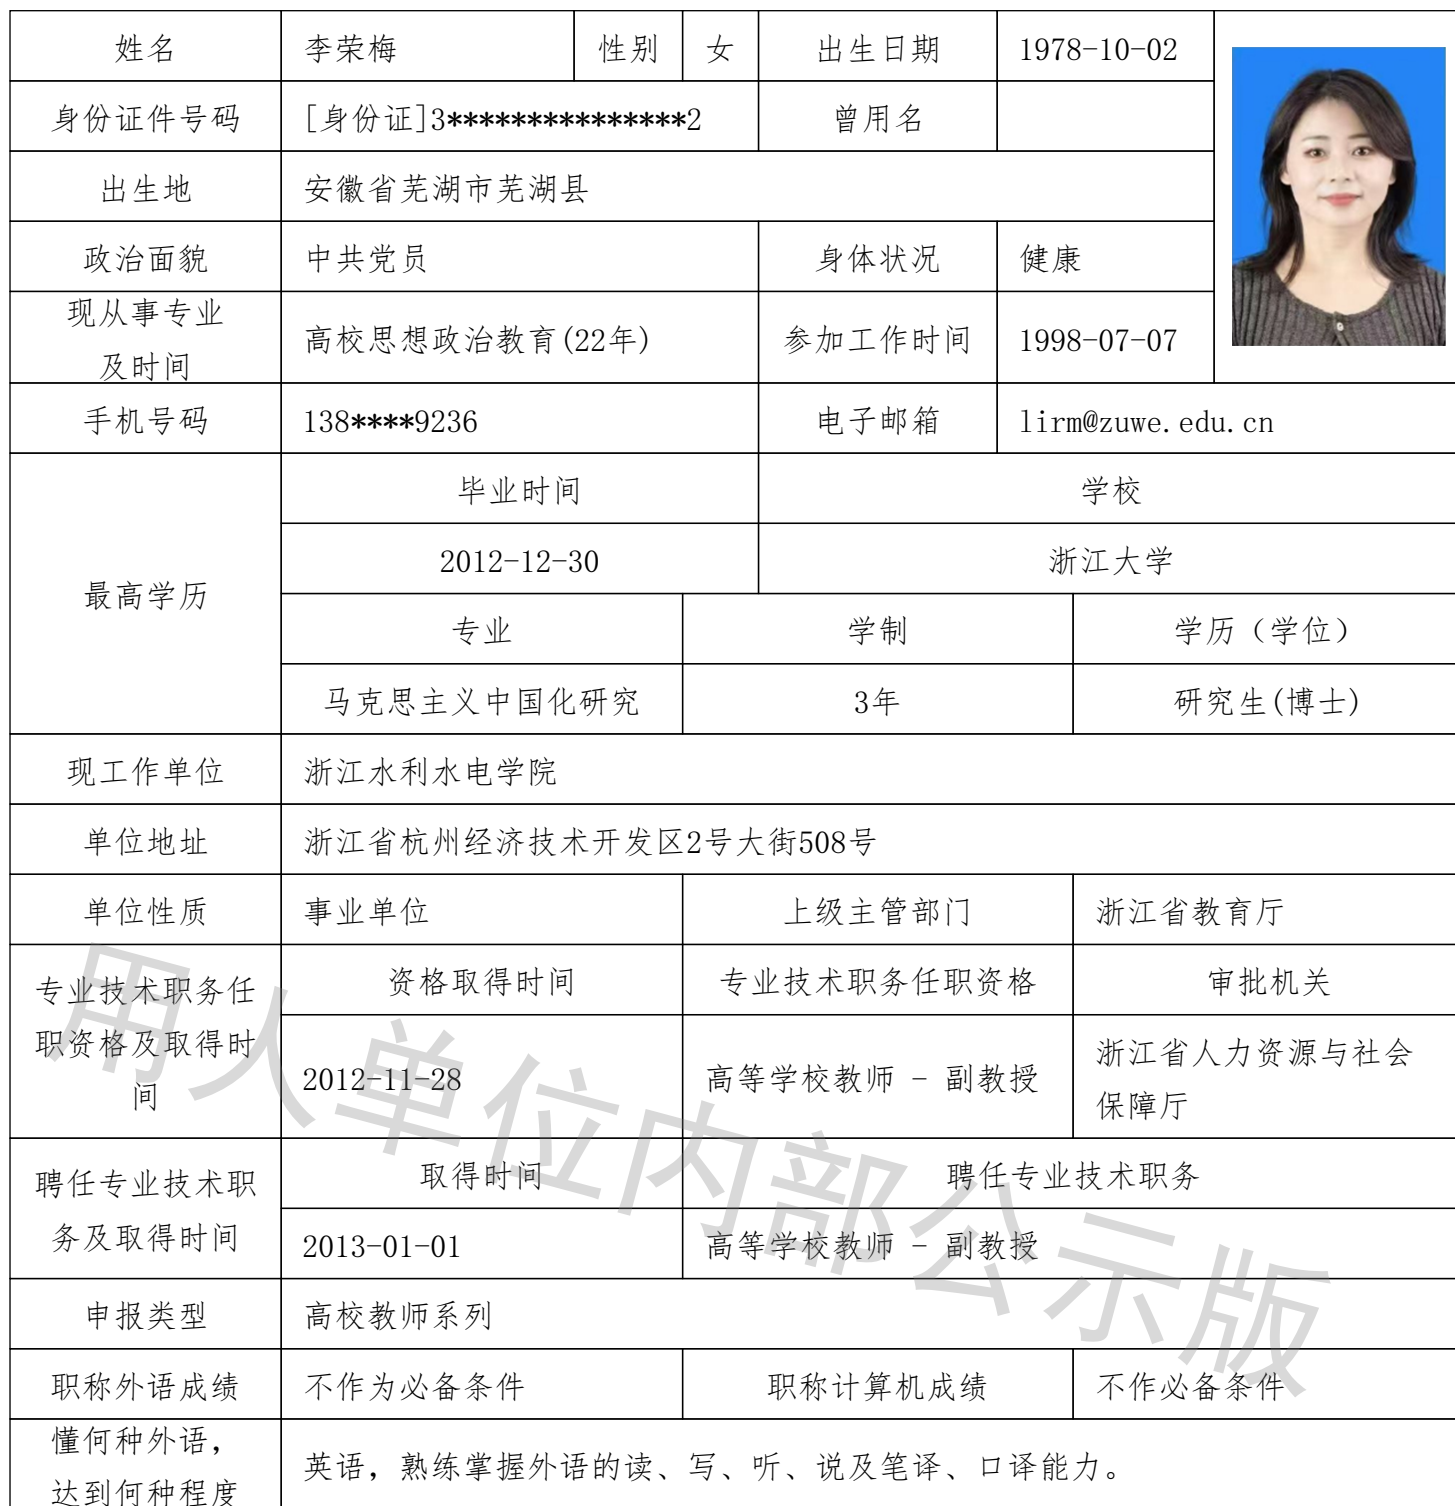 姓名 李荣梅 性别 女 出生日期 1978-10-02
身份证件号码 [身份证]3***************2 曾用名
出生地 安徽省芜湖市芜湖县
政治面貌 中共党员 身体状况 健康
现从事专业
及时间
高校思想政治教育(22年) 参加工作时间 1998-07-07
手机号码 138****9236 电子邮箱 lirm@zuwe.edu.cn
最高学历
毕业时间 学校
2012-12-30 浙江大学
专业 学制 学历（学位）
马克思主义中国化研究 3年 研究生(博士)
现工作单位 浙江水利水电学院
单位地址 浙江省杭州经济技术开发区2号大街508号
单位性质 事业单位 上级主管部门 浙江省教育厅
专业技术职务任
职资格及取得时
间
资格取得时间 专业技术职务任职资格 审批机关
2012-11-28 高等学校教师 - 副教授 浙江省人力资源与社会
保障厅
聘任专业技术职
务及取得时间
取得时间 聘任专业技术职务
2013-01-01 高等学校教师 - 副教授
申报类型 高校教师系列
职称外语成绩 不作为必备条件 职称计算机成绩 不作必备条件
懂何种外语，
达到何种程度
英语，熟练掌握外语的读、写、听、说及笔译、口译能力。
用人单位内部公示版